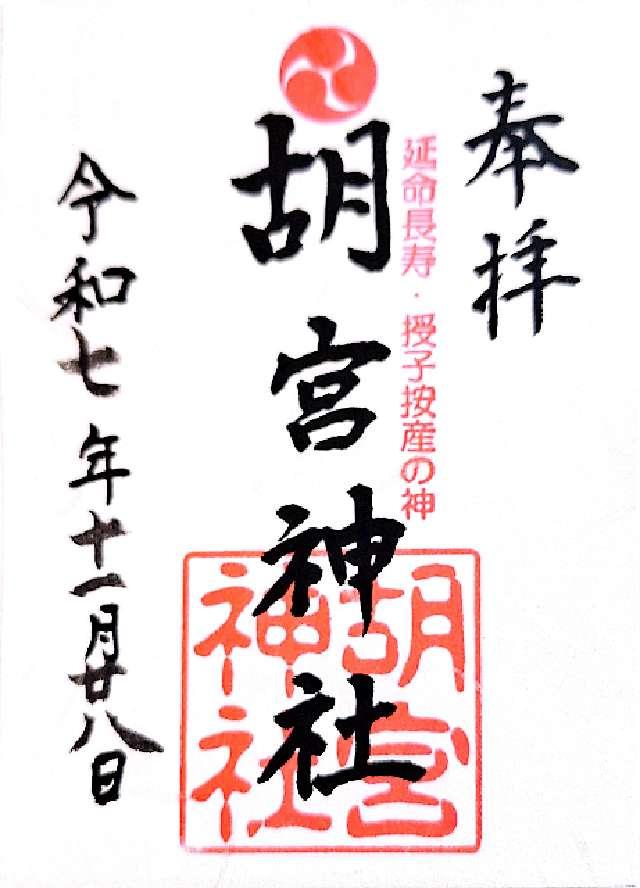 奉拝
延命長寿・授子按産の神
胡宮神社
胡宮
神社
令和七年十一月廿八日